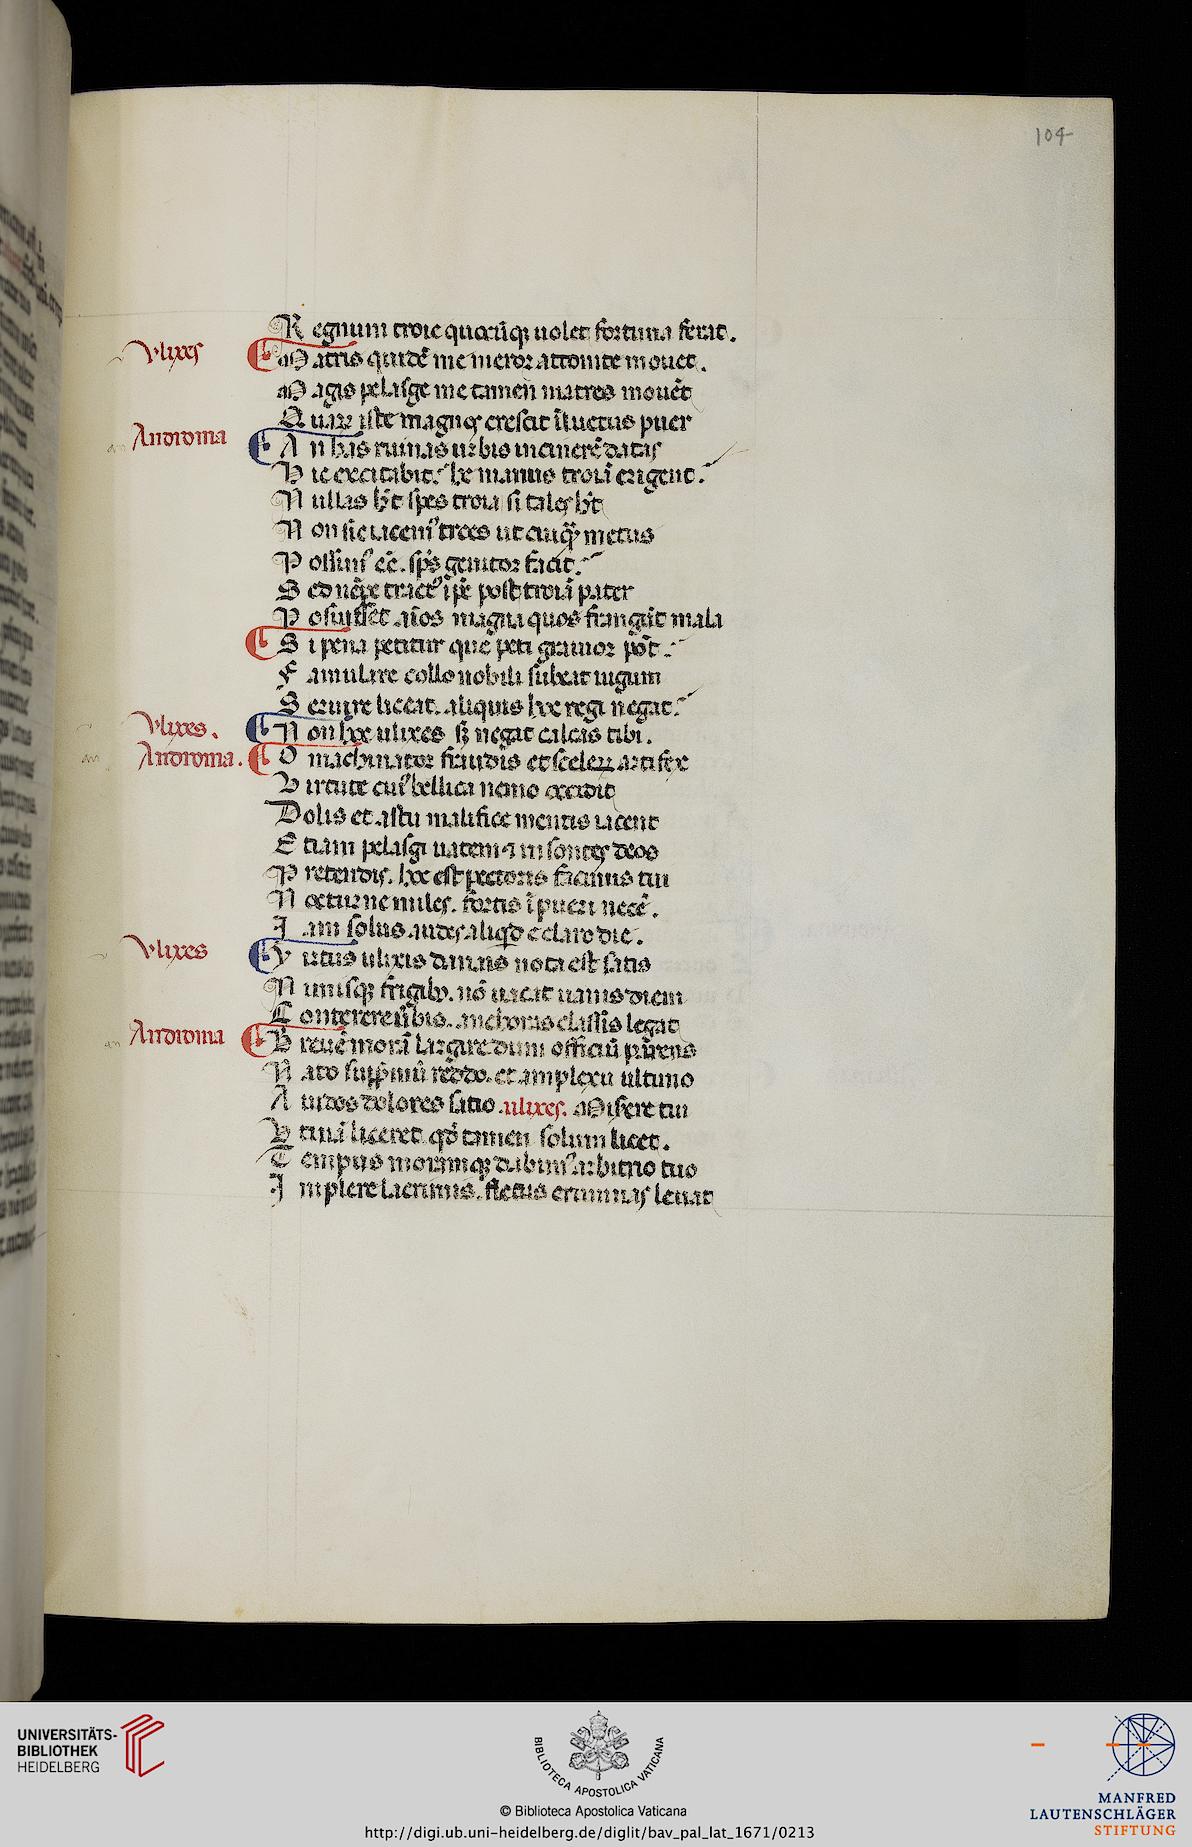 104
Regnum troie quocūq; uolet fortuna ferat.
Vlixes
Matris quidē me meror attonite mouet.
Magis pelasge me tamen matres mouēt
Quaꝝ iste magnos crescit ī luctus puer
Androma
An has ruinas urbis in cinerē datas
Hic excitabit. hee manus troiā erigent.
Nullas hēt spes troia si tales hēt
Non sic iacemꝰ troes ut cuiq̄ metus
Possimꝰ eē. sps̄ genitor facit.
Sed nēpe tractꝰ ip̄e post troiā pater
Posuisset aīos magna quos frangūt mala
Si pena petitur que peti grauior pōt.
Famulare collo nobili subeat iugum
Seruire liceat. aliquis hoc regi negat.
Vlixes.
Non hoc ulixes sꝫ negat calcas tibi.
Androma.
O machinator fraudis et sceleꝝ artifex
Virtute cuiꝰ bellica nemo occidit
Dolis et astu malifice mentis iacent
Etiam pelasgi uatem ⁊ insontes deos
Pretendis. hoc est pectoris facinus tui
Nocturne miles. fortis ī pueri necē.
Iam solus audes aliqd̄ e claro die.
Vlixes
Virtus ulixis danais nota est satis
Nimisq; frigibꝫ. nō uacat uanis diem
Conterere ūbis. anchoras classis legat
Androma
Breuē morā largire dum officiū parens
Nato supp̄mū reddo. et amplexu ultimo
Auidos dolores satio. ulixes. Misere tui
Vtinā liceret. qd̄ tamen solum licet.
Tempus moramq; dabimꝰ arbitrio tuo
Implere lacrimis. fletus erumnas leuat
UNIVERSITÄTS-
BIBLIOTHEK
HEIDELBERG
BIBLIOTECA APOSTOLICA VATICANA
© Biblioteca Apostolica Vaticana
http://digi.ub.uni-heidelberg.de/diglit/bav_pal_lat_1671/0213
MANFRED
LAUTENSCHLÄGER
STIFTUNG